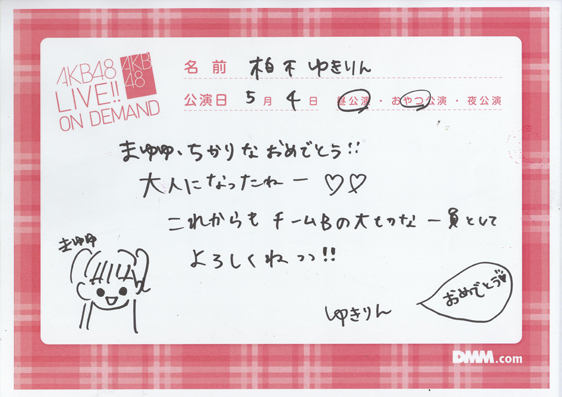 AKB48
LIVE!!
ON DEMAND
AKB
48
名前 柏木ゆきりん
公演日 5月4日 昼公演・おやつ公演・夜公演
まゆゆ、ちかりな おめでとう!!
大人になったねー ♡♡
これからも チームBの大切な一員として
よろしくねっっ!!
まゆゆ
おめでとう♥
ゆきりん
DMM.com